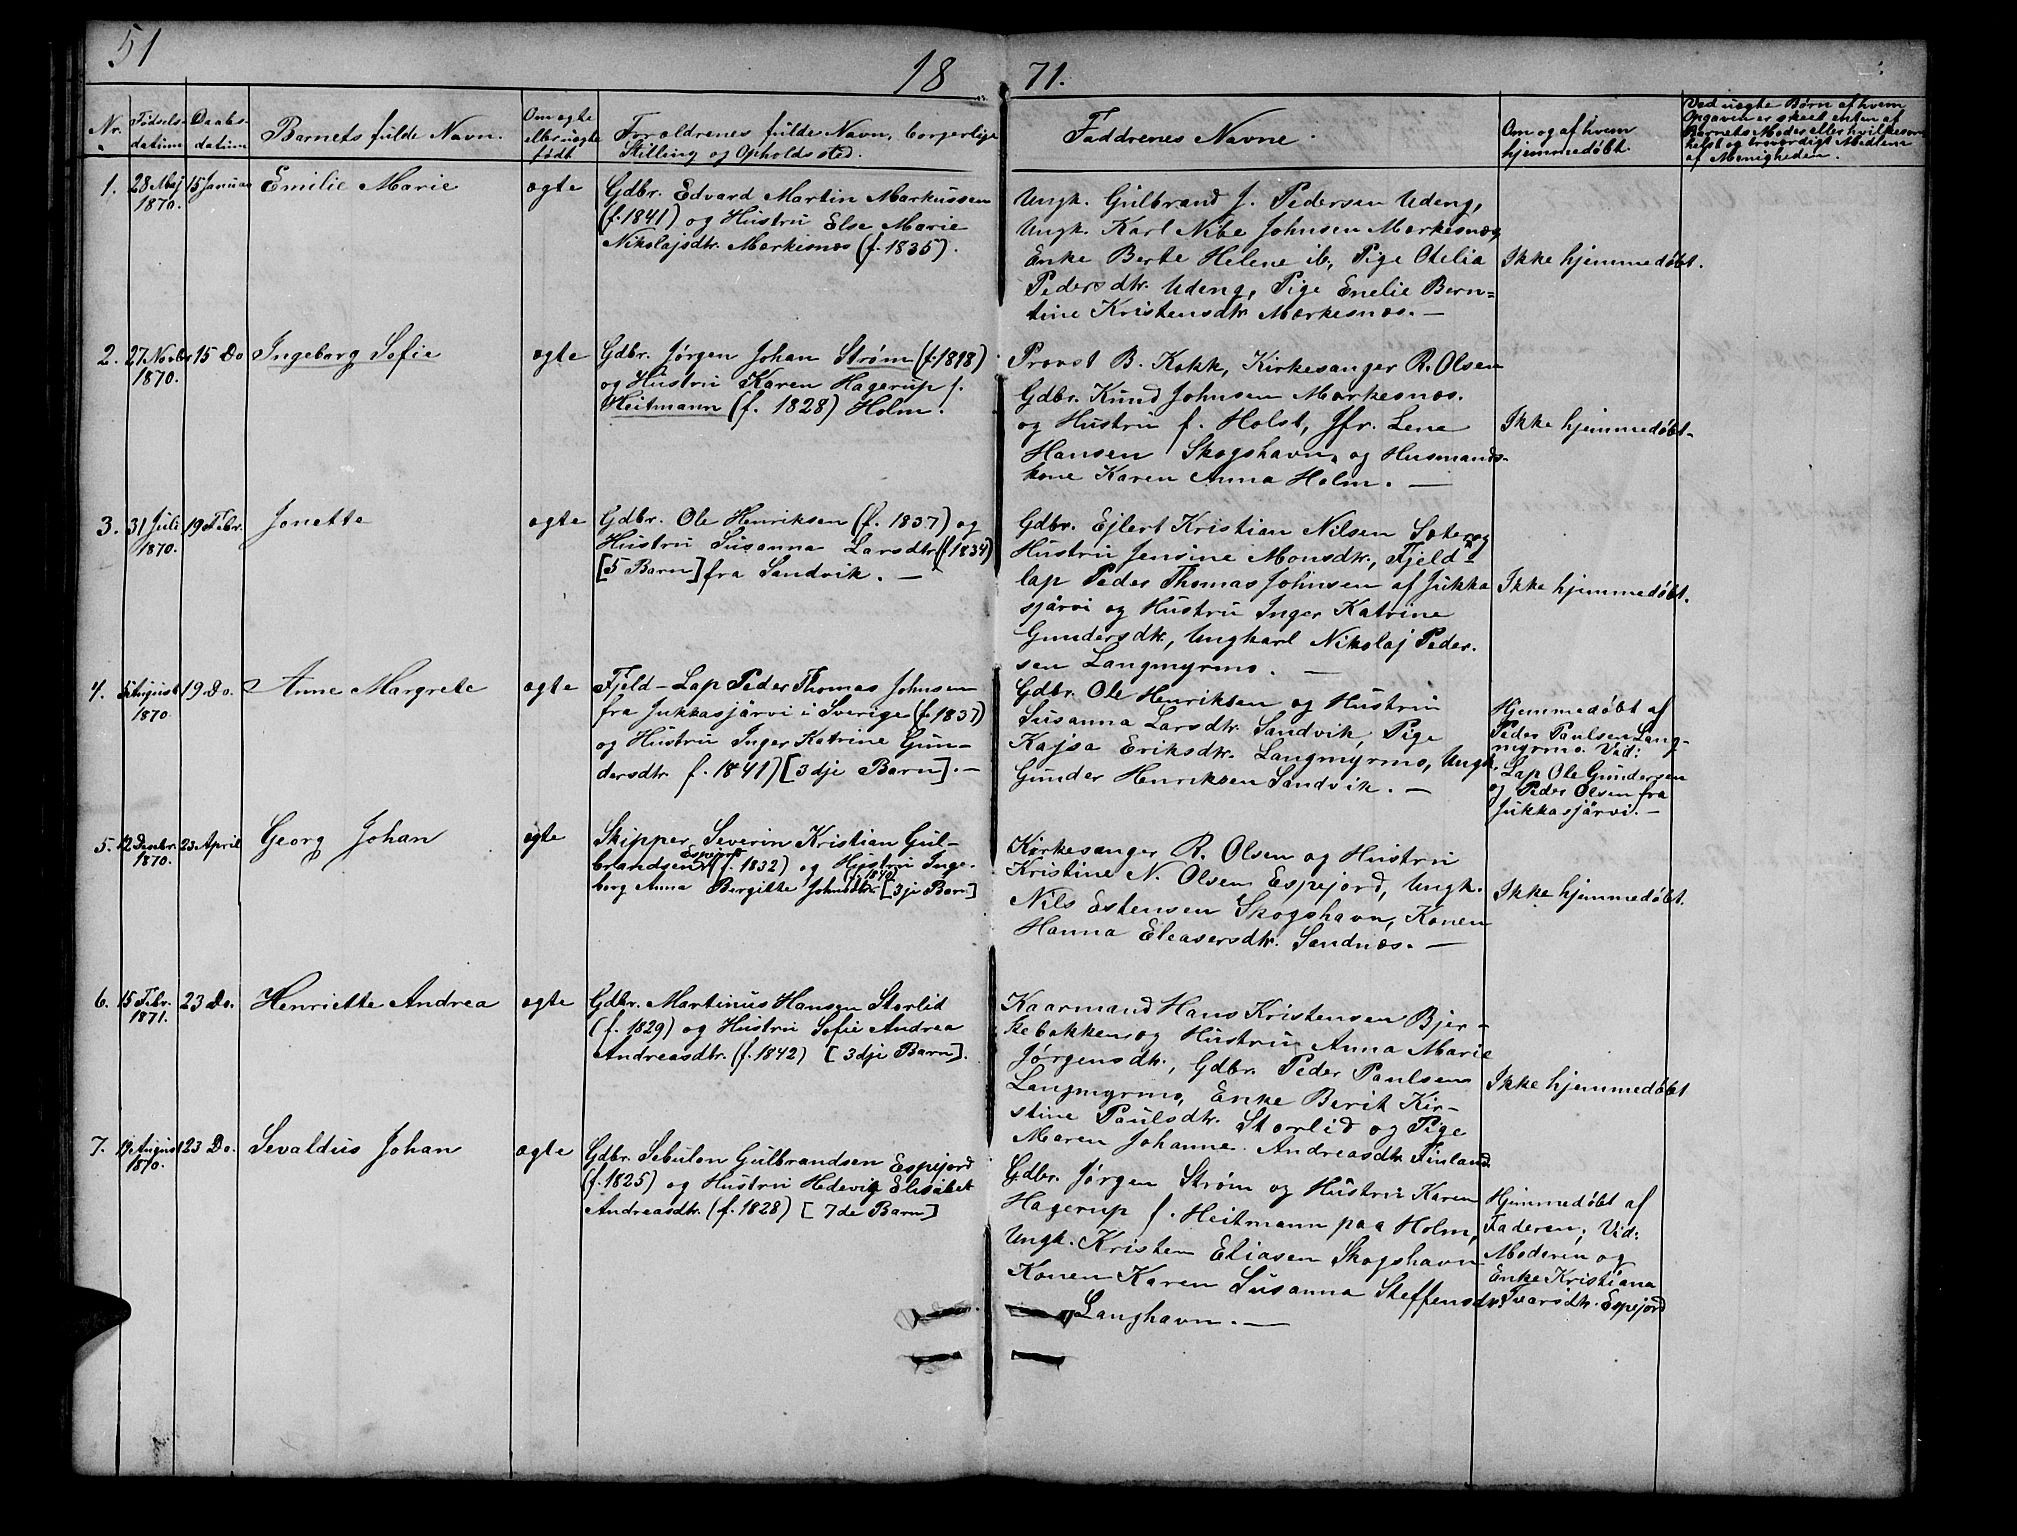 51
18 71.
Nr.
Fødsels-
datum
Daabs-
datum
Barnets fulde Navn.
Om ægte
eller uægte
født.
Forældrenes fulde Navn, borgerlige
Stilling og Opholdssted.
Faddrenes Navne.
Om og af hvem
hjemmedøbt.
Ved uægte Børn af hvem
Opgaven er skeet enten af
Barnets Moder eller hvilkesom-
helst og troværdigt Medlem
af Menigheden.
1.
28 Maj
1870.
15 Januar
Emilie Marie
ægte
Gdbr. Edvard Martin Markussen
(f. 1841) og Hustru Else Marie
Nikolajsdtr. Mærkesnæs (f. 1835).
Ungk. Gulbrand J. Pedersen Udeng,
Ungk. Karl Nibe Johnsen Mærkesnæs,
Enke Berte Helene ib, Pige Otelia
Pedersdtr. Udeng, Pige Enelie Bern=
tine Kristensdtr Mærkesnæs. —
Ikke hjemmedøbt.
2.
27 Novbr
1870.
15 Do
Ingeborg Sofie
ægte
Gdbr. Jørgen Johan Strøm (f. 1818)
og Hustru Karen Hagerup f.
Heitmann (f. 1828) Holm.
Provst B. Kokk, Kirkesanger R. Olsen
Gdbr. Knud Johnsen Mærkesnæs.
og Hustru f. Holst, Jfr. Lene
Hansen Skogshavn, og Husmands-
kone Karen Anna Holm. —
Ikke hjemmedøbt.
3.
31 Juli
1870.
19 Febr.
Jonette
ægte
Gdbr. Ole Henriksen (f. 1837) og
Hustru Susanna Larsdtr. (f. 1834)
[5 Barn] fra Sandvik. —
Gdbr. Ejlert Kristian Nilsen Sæter og
Hustru Jensine Monsdtr., Fjeld-
lap Peder Thomas Johnsen af Jukka
sjärvi og Hustru Inger Katrine
Gundersdtr, Ungkarl Nikolaj Peder-
sen Langmyrmo. —
Ikke hjemmedøbt.
4.
August
1870.
19 Do.
Anne Margrete
ægte
Fjeld-Lap Peder Thomas Johnsen
fra Jukkasjärvi i Sverige (f. 1837)
og Hustru Inger Katrine Gun-
dersdtr. f. 1841) [3dje Barn]. —
Gdbr. Ole Henriksen og Hustru
Susanna Larsdtr. Sandvik, Pige
Kajsa Eriksdtr. Langmyrmo, Ungk.
Gunder Henriksen Sandvik. —
Hjemmedøbt af
Peder Paulsen Lang-
myrmo. Vid:
Lap Ole Gundersen
og Peder Olsen fra
Jukkasjärvi. —
5.
12 Decbr.
1870.
23 April
Georg Johan
ægte
Skipper Severin Kristian Gul-
brandsen Espejord (f. 1832) og Hustru Inge-
borg Anna Bergitte Johnsdtr. (f. 1840) [3je Barn]
Kirkesanger R. Olsen og Hustru
Kristine N. Olsen Espejord, Ungk.
Nils Estensen Skogshavn, Konen
Hanna Eleasersdtr. Sandnæs. —
Ikke hjemmedøbt.
6.
15 Febr.
1871.
23 Do.
Henriette Andrea
ægte
Gdbr. Martinus Hansen Storlid
(f. 1829) og Hustru Sofie Andrea
Andreasdtr. (f. 1842) [3dje Barn].
Kaarmand Hans Kristensen Bjer-
kebakken og Hustru Anna Marie
Jørgensdtr, Gdbr. Peder Paulsen
Langmyrmo, Enke Berit Kir-
stine Paulsdtr. Storlid og Pige
Maren Johanne Andreasdtr Finland
Ikke hjemmedøbt
7.
19 August
1870.
23 Do.
Sevaldus Johan
ægte
Gdbr. Sebulon Gulbrandsen Espejord
(f. 1825) og Hustru Hedevig Elisabet
Andreasdtr. (f. 1828) [7de Barn]
Gdbr. Jørgen Strøm og Hustru Karen
Hagerup f. Heitmann paa Holm,
Ungk. Kristen Eliasen Skogshavn
Konen Karen Susanna Steffensdtr
Langhavn. —
Hjemmedøbt af
Faderen; Vid:
Moderen og
Enke Kristiana
Ivarsdtr. Espejord